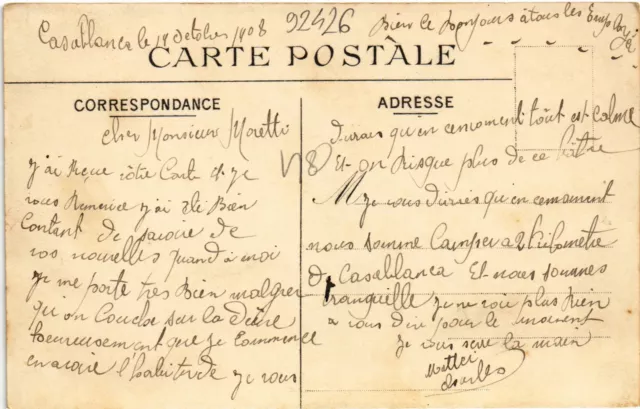 Casablanca le 14 octobre 1908
92426
Bien le Bonjours a tous les Employé
CARTE POSTALE
CORRESPONDANCE
Cher Monsieur Moretti
j'ai Reçue votre Carte et je
vous Remercie j'ai été Bien
Contant de savoir de
vos nouvelles quand à moi
je me porte très Bien malgrer
qu on Couche sur la
heureusement que je Commence
en avoir l'habitude je vous
ADRESSE
dirais qu'en cemoment tout est Calme
Et on Risque plus de ce battre
je vous dirais qu'en cemoment
nous somme Camper a 2 kilometre
de Casablanca Et nous sommes
tranquille je ne voie plus Rien
a vous dire pour le moment
je vous serre la main
Mattei
Charles